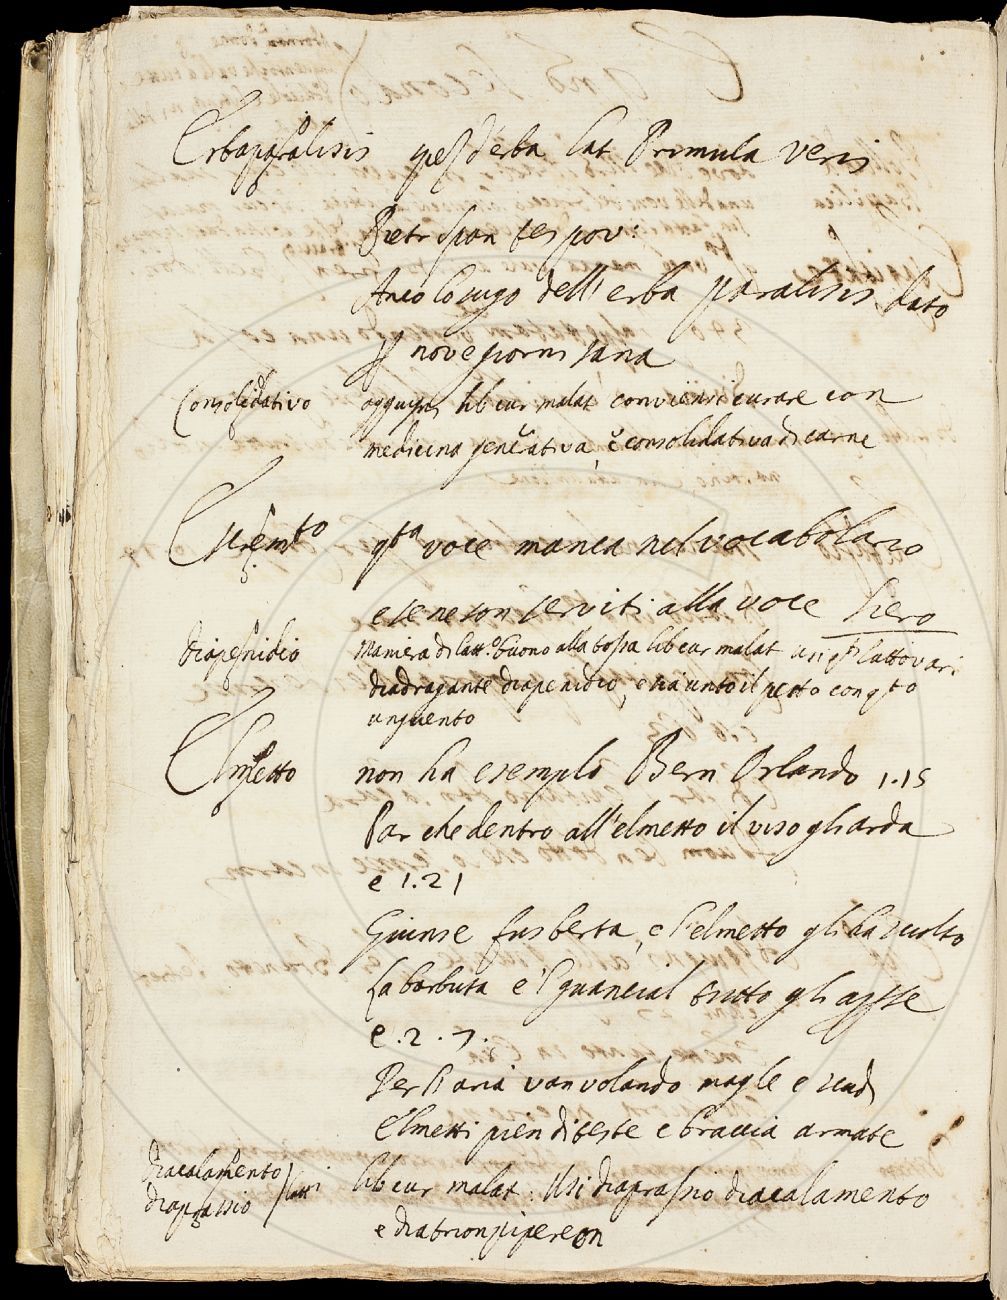 Erbaparalisis spes d'erba lat Primula veris
Pietr span tes pov:
Anco lo sugo dell'erba paralisis dato
p nove giorni sana
Consolidativo lib cur malat conviensi curare con
medicina generativa, e consolidativa di carne
qta voce manca nel vocabolario
e se ne son serviti alla voce Siero
Diapenidio Maniera di latto buono alla tossa lib cur malat usi qsti lattovari
diadragante diapenidio, e sia unto il petto con qto
unguento
Elmetto non ha esemplo Bern Orlando 1.15
Par che dentro all'elmetto il viso gli arda
e 1.21
Giunse fusberta, e l'elmetto gli ha sciolto
La barbuta e 'l guancial tutto gli aperse
e. 2. 7.
Per l'aria van volando maglie e scudi
Elmetti pien di teste e braccia armate
Diacalamento
Diaprassio latti lib cur malat: Usi diaprassio diacalamento
e diatrionpipereon